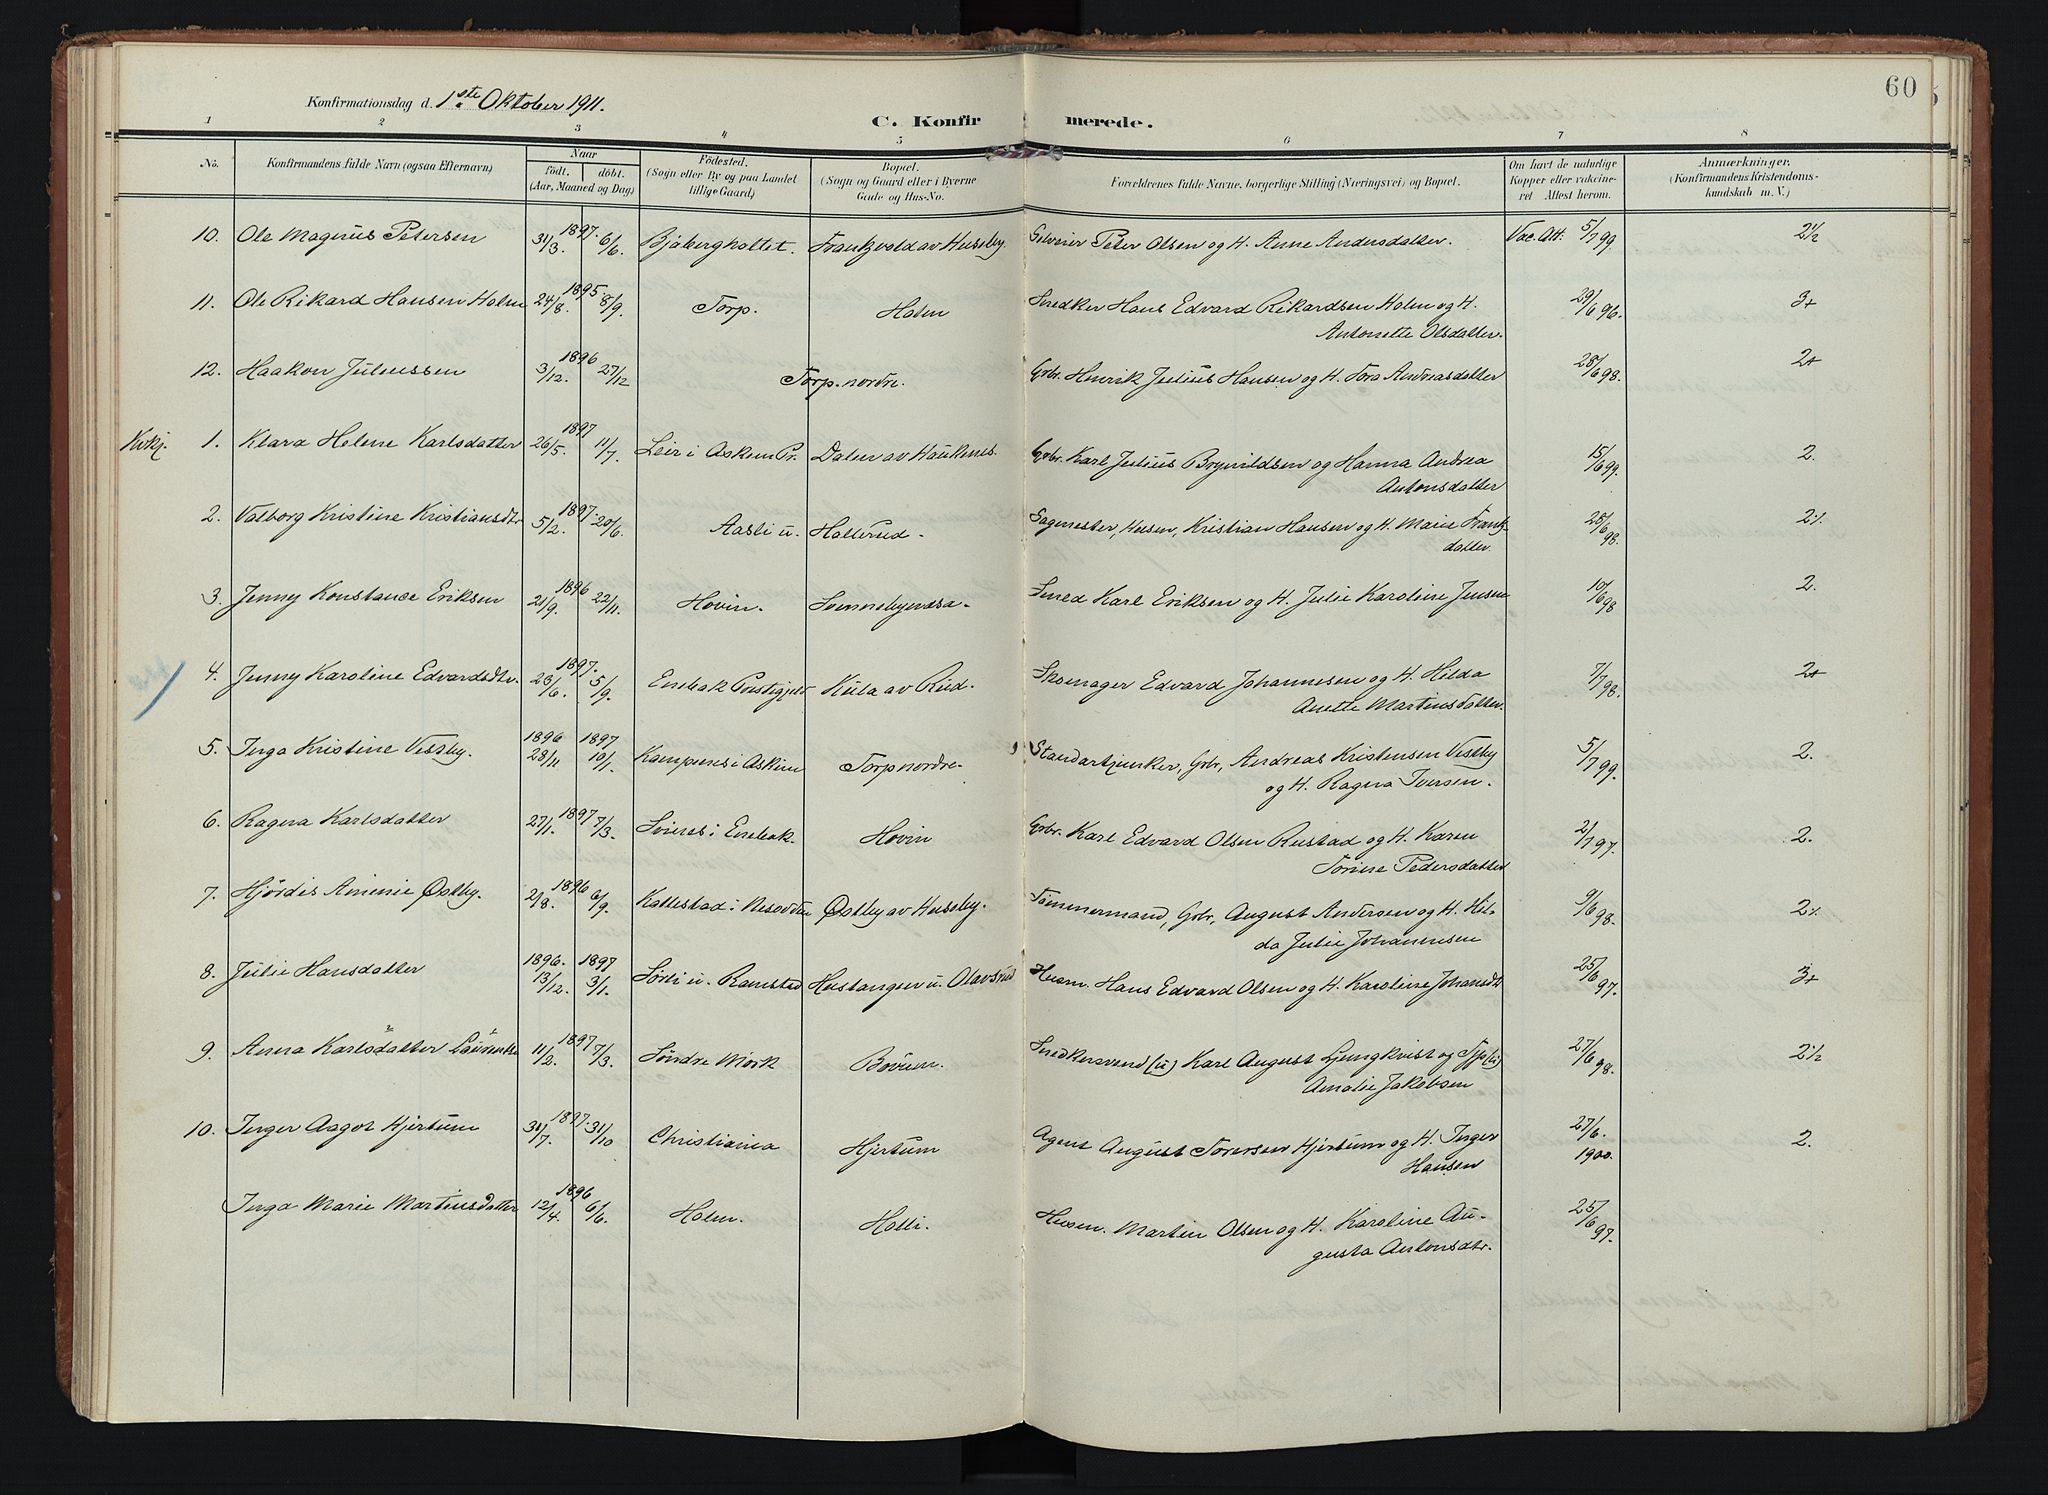 60
Konfirmationsdag d. 1ste Oktober 1911.
C. Konfirmerede.
1 2 3 4 5 6 7 8
No. Konfirmandens fulde Navn (ogsaa Efternavn) Naar födt. döbt. (Aar, Maaned og Dag) Födested. (Sogn eller By og paa Landet tillige Gaard) Bopæl. (Sogn og Gaard eller i Byerne Gade og Hus-No. Forældrenes fulde Navne, borgerlige Stilling (Næringsvei) og Bopæl. Om havt de naturlige Kopper eller vaccineret Attest herom. Anmærkninger. (Konfirmandens Kristendomskundskab m. V.)
10. Ole Magnus Petersen 1897. 31/3. 6/6. Bjaberghattet. Frankvold av Huseby. Peter Olsen og H. Anne Andersdatter. Vac. Att. 5/7 99 2 1/2
11. Ole Rikard Hansen Holm 1895. 24/8. 8/9. Torp. Holm Snedker Hans Edvard Rikardsen Holm og H. 29/6 96. 3+
Antonette Olsdatter.
12. Haakon Juliussen 1896 3/12. 27/12 Torp nordre. Gbr. Henrik Julius Hansen og H. Tora Andreasdatter 28/6 98. 2+
Kvkj. 1. Klara Helene Karlsdatter 1897 26/5. 11/7. Leir i Askim Pr. Dalen av Haukenes. Gbr. Karl Julius Brynildsen og Hanna Andrea 15/6 99. 2.
Antonsdatter
2. Valborg Kristine Kristiansdtr 1897. 5/2. 20/6. Aasli u. Hallerud. Sagmester, Kristian Hansen og H. Marie Frantz- 25/6 98. 2 1/2
datter.
3. Jenny Konstance Eriksen 1896 21/9. 22/11. Hovin. Smed Karl Eriksen og H. Julie Karoline Jensen 10/6 98 2.
4. Jenny Karoline Edvardsdtr. 1897. 23/6. 5/9. Enebak Prestigjeld Kula av Rud. Skomager Edvard Johannesen og H. Hilda 7/7 98. 2+
Anette Martinsdatter.
5. Inga Kristine Vestby. 1896 28/11 1897 10/1. Kampenes i Askim Torp nordre. Standartjunker, Gbr, Andreas Kristensen Vestby 5/7 99. 2.
og H. Ragna Iversen.
6. Ragna Karlsdatter 1897 27/1. 7/3. i Enebak. Hovin Gbr. Karl Edvard Olsen Rustad og H. Karen 2/7 97. 2.
Torine Pedersdatter
7. Hjördis Aminie Østby. 1896 2/8. 6/9. Kallestad i Nesodden Østby av Huseby. Tömmermand, Gbr, August Andersen og H. Hil- 9/6 98. 2 1/2
da Julie Johannesen
8. Julie Hansdatter 1896. 13/12. 1897 3/1. Sörli u. Ramstad Hustangen u. Olavsrud Husm. Hans Edvard Olsen og H. Karoline Johansdt 25/6 97. 3+
9. Anna Karlsdatter 1897 11/2. 7/3. Söndre Mörk Bövum. Snedkersvend (u) Karl August Ljungkvist og Tje (u) 27/6 98. 2 1/2
Amalie Jakobsen
10. Inger Aagot Hjertum 1897. 31/7. 31/10 Christiania Hjertum Agent August Torersen Hjertum og H. Inger 27/6. 1900. 2.
Hansen
Inga Marie Martinsdatter 1896 12/4. 6/6. Holm. Halli. Husm. Martin Olsen og H. Karoline Au- 25/6 97.
gusta Antonsdtr.